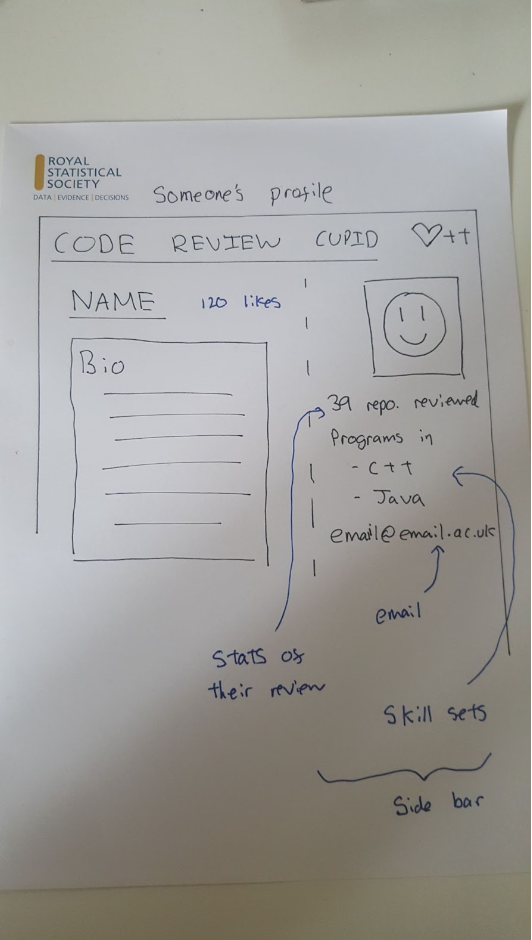 ROYAL
STATISTICAL
SOCIETY
DATA | EVIDENCE | DECISIONS
Someone's profile
CODE REVIEW CUPID ♡++
NAME 120 likes
Bio
39 repo. reviewed
Programs in
- C++
- Java
email@email.ac.uk
email
Stats of
their review
Skill sets
Side bar